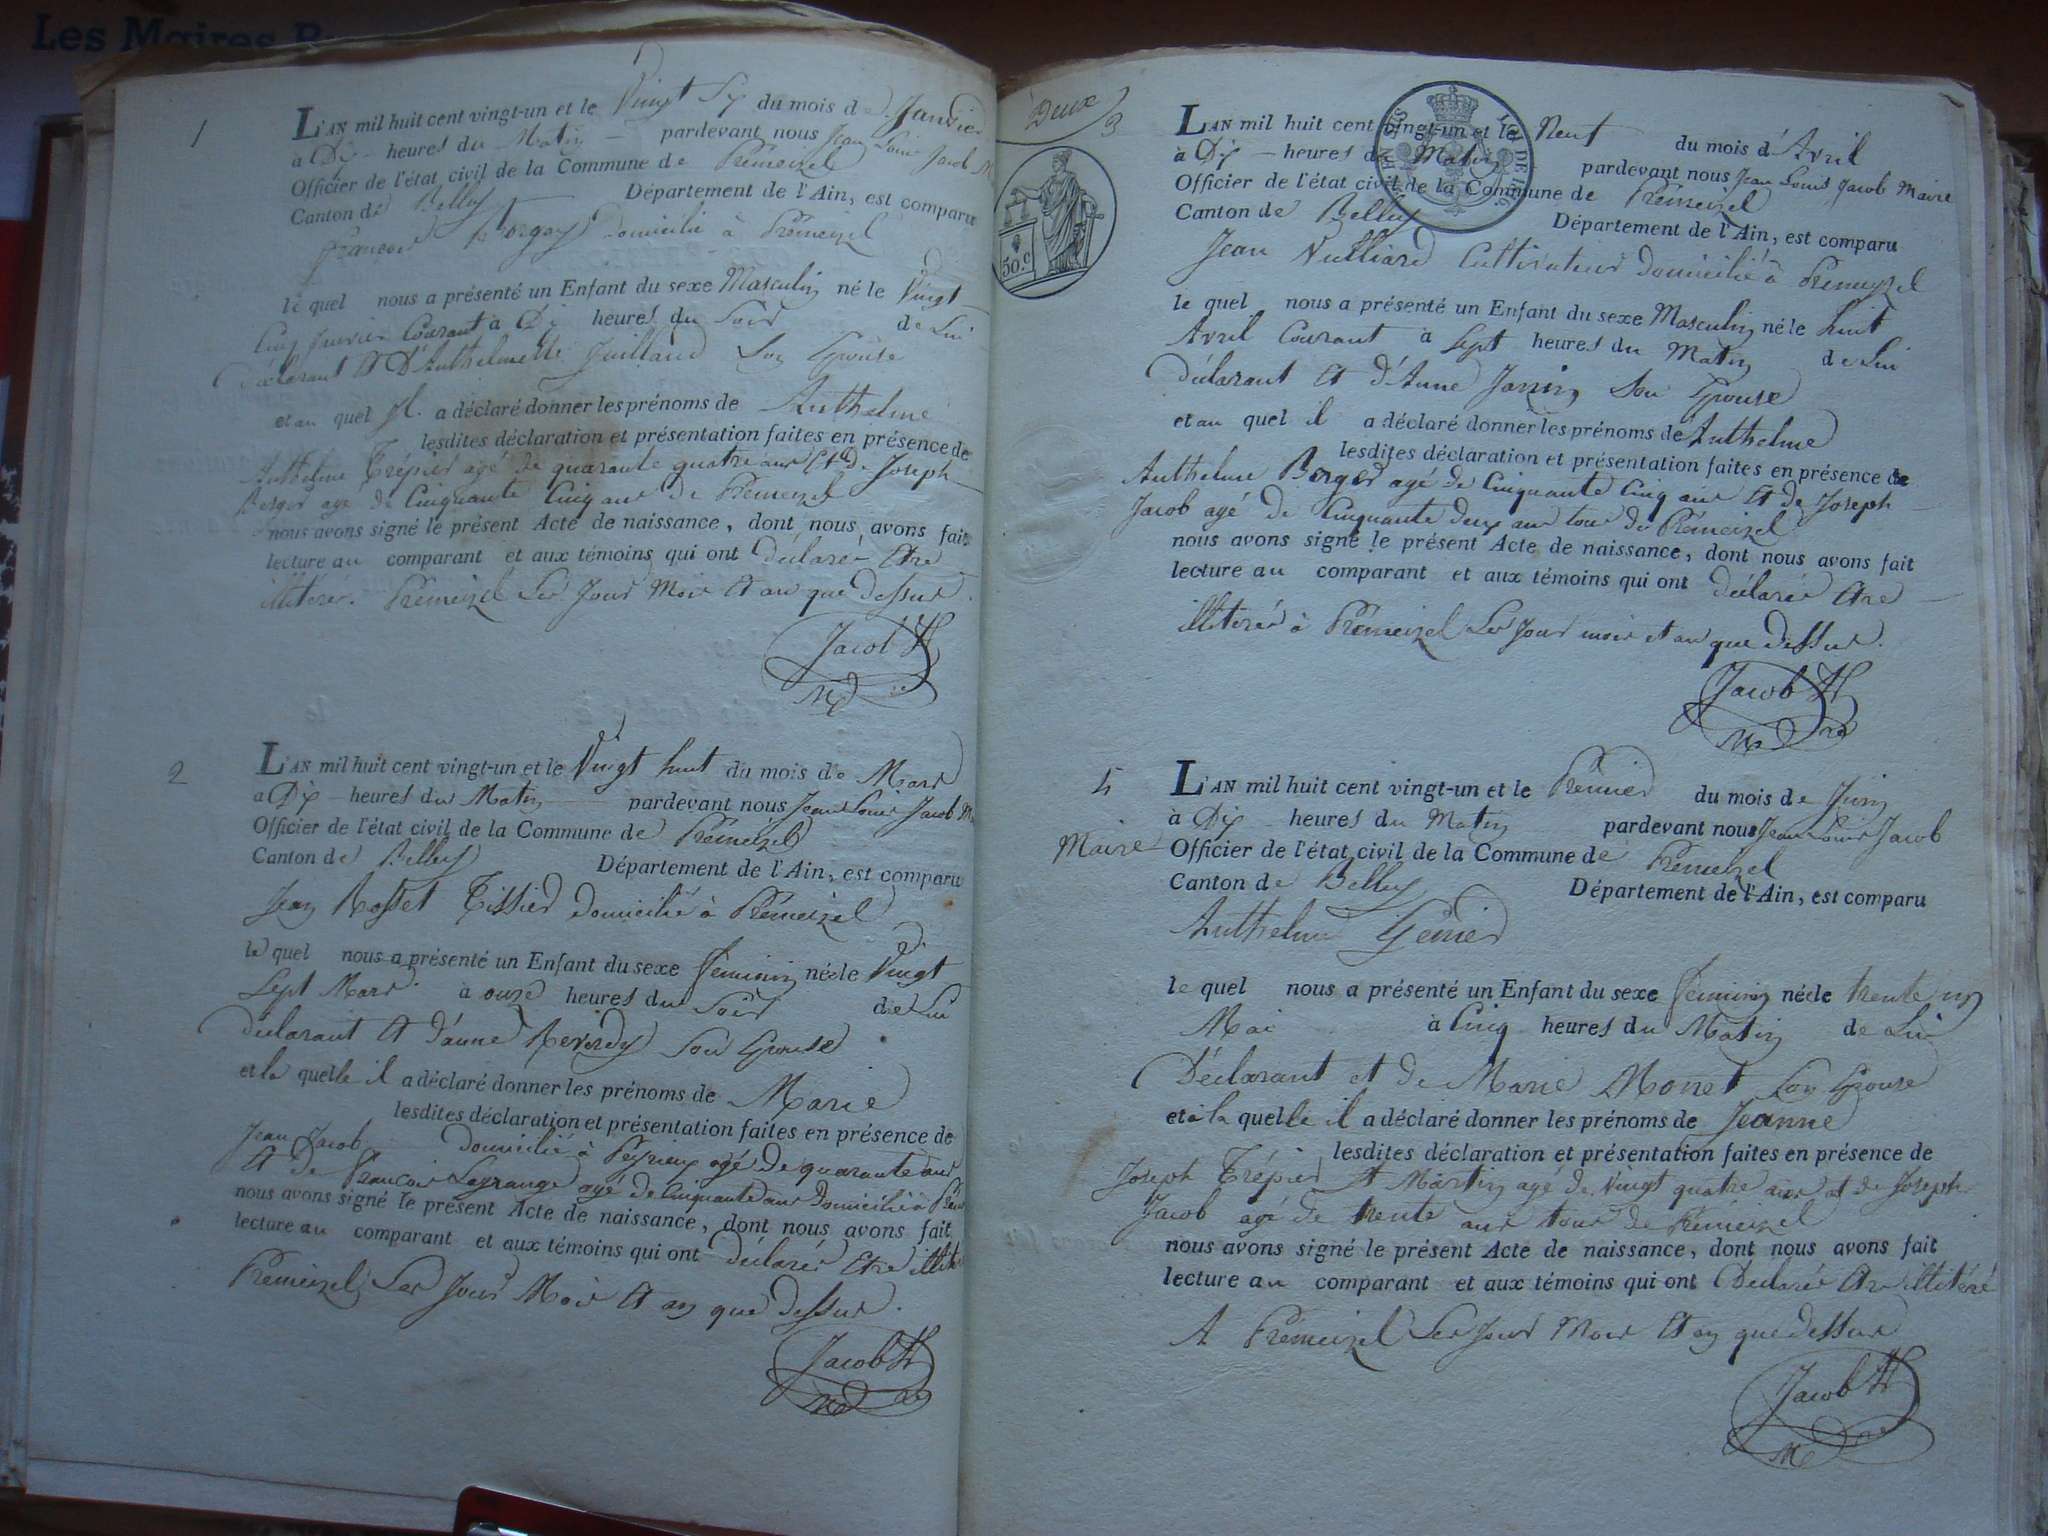 Les Maires
1
L'AN mil huit cent vingt-un et le Vingt Six du mois de Janvier
à Dix heures du Matin pardevant nous Jean Louis Jacob M
Officier de l'état civil de la Commune de Prémeizel
Canton de Belley Département de l'Ain, est comparu
françois domicilié à Prémeizel
le quel nous a présenté un Enfant du sexe Masculin né le Vingt
Cinq Janvier Courant à Dix heures du Soir de Lui
Déclarant et D'Anthelmette Juilland Son Epouse
et au quel Il a déclaré donner les prénoms de Anthelme
lesdites déclaration et présentation faites en présence de
Anthelme Trépier agé de quarante quatre ans et de Joseph
Berger agé de Cinquante Cinq ans de Prémeizel
nous avons signé le présent Acte de naissance, dont nous avons fait
lecture au comparant et aux témoins qui ont déclaré Etre
illitérés. Prémeizel Les Jour Mois et an que dessus.
Jacob
2
L'AN mil huit cent vingt-un et le Vingt huit du mois de Mars
à Dix heures du Matin pardevant nous Jean Louis Jacob M
Officier de l'état civil de la Commune de Prémeizel
Canton de Belley Département de l'Ain, est comparu
Jean Rosset Tissier domicilié à Prémeizel
le quel nous a présenté un Enfant du sexe féminin née le Vingt
Sept Mars à onze heures du Soir de Lui
déclarant et d'anne Reverdy Son Epouse
et la quelle il a déclaré donner les prénoms de Marie
lesdites déclaration et présentation faites en présence de
Jean Jacob domicilié à Peyrieux agé de quarante ans
et de François Lagrange agé de Cinquante ans Domicilié à
nous avons signé le présent Acte de naissance, dont nous avons fait
lecture au comparant et aux témoins qui ont déclarés Etre
Premeizel Les Jour Mois et an que dessus.
Jacob
Deux
3
50.c
L'AN mil huit cent vingt-un et le Neuf du mois d'Avril
à Dix heures du Matin pardevant nous Jean Louis Jacob Maire
Officier de l'état civil de la Commune de Prémeizel
Canton de Belley Département de l'Ain, est comparu
Jean Vulliard Cultivateur domicilié à Prémeyzel
le quel nous a présenté un Enfant du sexe Masculin né le huit
Avril Courant à Sept heures du Matin de Lui
déclarant et d'Anne Janin Son Epouse
et au quel il a déclaré donner les prénoms de Anthelme
lesdites déclaration et présentation faites en présence de
Anthelme Berger agé de Cinquante Cinq ans et de Joseph
Jacob agé de Cinquante deux ans tous de Prémeizel
nous avons signé le présent Acte de naissance, dont nous avons fait
lecture au comparant et aux témoins qui ont déclarés Etre
illiterés à Prémeizel Les Jour mois et an que dessus.
Jacob
L'AN mil huit cent vingt-un et le Prémier du mois de Juin
à Dix heures du Matin pardevant nous Jean Louis Jacob
Maire Officier de l'état civil de la Commune de Prémeizel
Canton de Belley Département de l'Ain, est comparu
Anthelme
le quel nous a présenté un Enfant du sexe féminin née le trente un
Mai à Cinq heures du Matin de Lui
Déclarant et de Marie Monet Son Epouse
et à la quelle il a déclaré donner les prénoms de Jeanne
lesdites déclaration et présentation faites en présence de
Joseph Trépier Martin agé de Vingt quatre ans et de Joseph
Jacob agé de trente ans tous de Prémeizel
nous avons signé le présent Acte de naissance, dont nous avons fait
lecture au comparant et aux témoins qui ont Déclarés Etre illitéré
A Prémeizel Les Jour Mois et an que dessus
Jacob